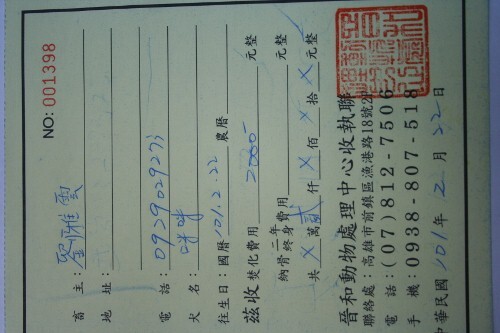 NO: 001398
畜主：劉雅雲
地址：
電話：0929029273
犬名：咩咩
往生日：國曆101.2.22農曆
茲收 焚化費用2000元整
納骨 二年 終身 費用 元整
共 X 萬 貳 仟 X 佰 X 拾 X 元整
晉和動物處理中心收執聯
聯絡處：高雄市前鎮區漁港路18號2F
電話：(07)812-7506
手機：0938-807-518
中華民國101年2月22日